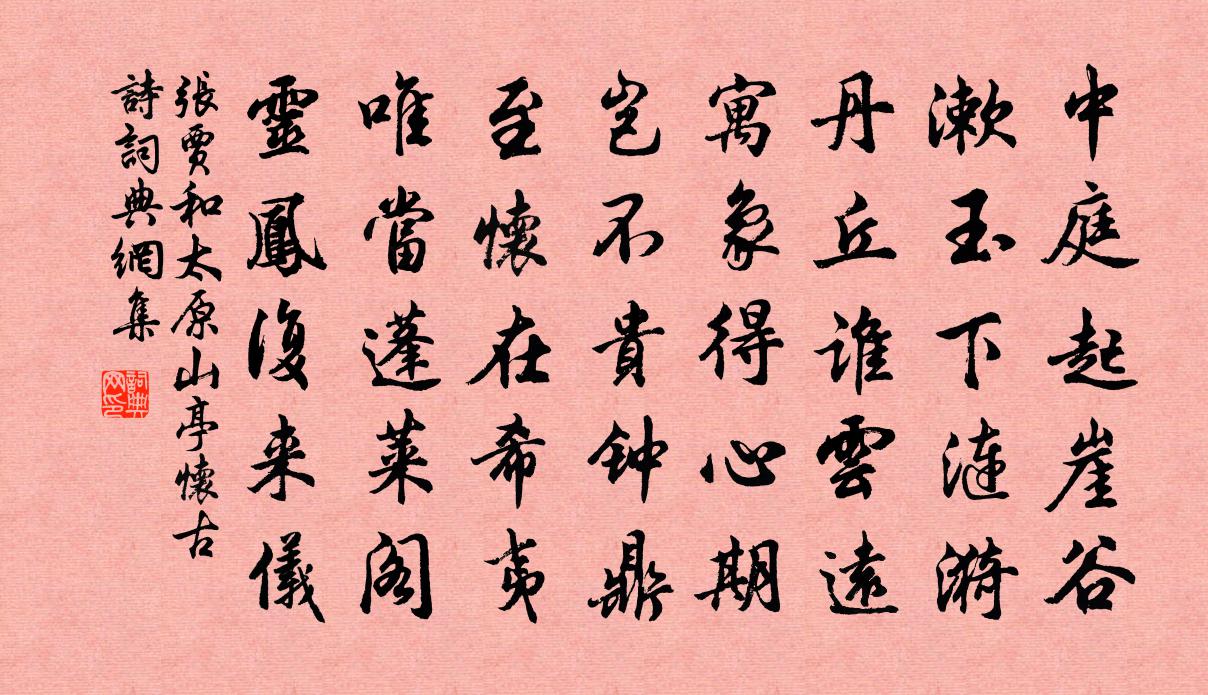 中庭起崖谷
漱玉下漣漪
丹丘誰雲遠
寓象得心期
豈不貴钟鼎
至懷在希夷
唯當蓬萊阁
靈鳳復来儀
張賈和太原山亭懷古
詩詞典網集
詞典网印